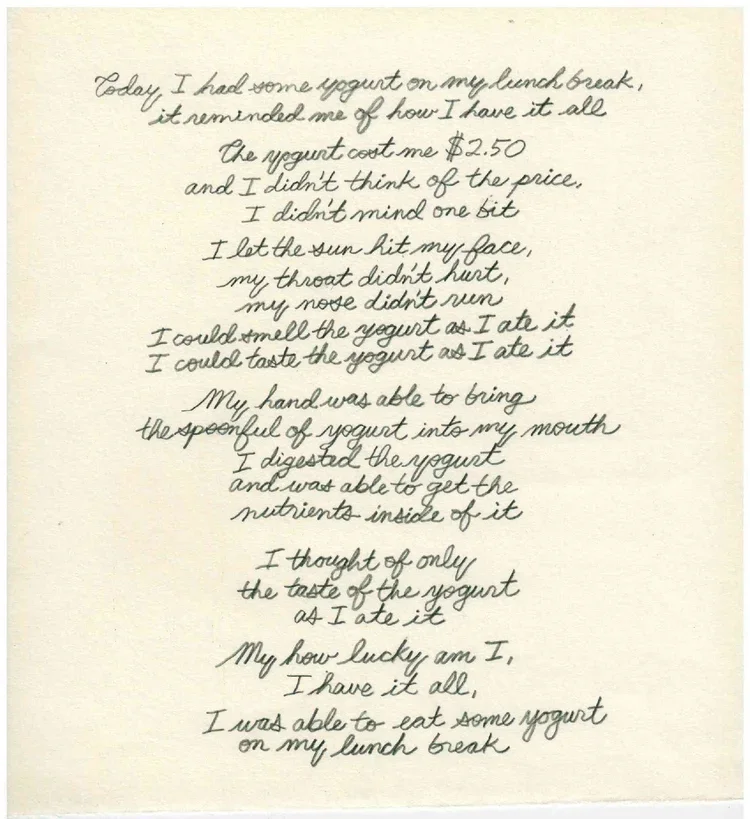 Today I had some yogurt on my lunch break,
it reminded me of how I have it all
The yogurt cost me $2.50
and I didn't think of the price,
I didn't mind one bit
I let the sun hit my face,
my throat didn't hurt,
my nose didn't run
I could smell the yogurt as I ate it
I could taste the yogurt as I ate it
My hand was able to bring
the spoonful of yogurt into my mouth
I digested the yogurt
and was able to get the
nutrients inside of it
I thought of only
the taste of the yogurt
as I ate it
My how lucky am I,
I have it all,
I was able to eat some yogurt
on my lunch break